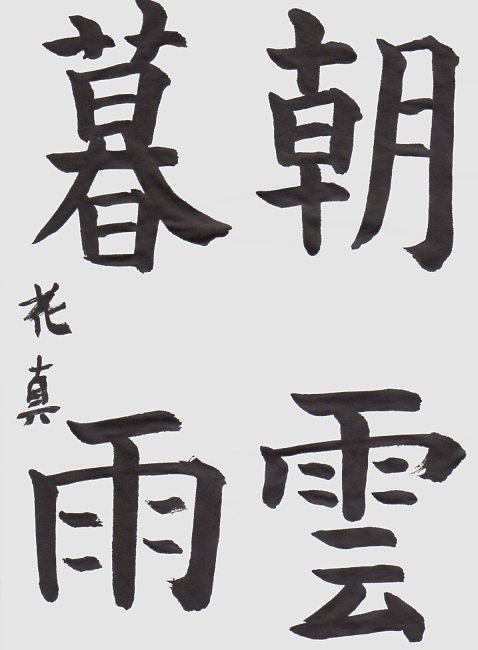 朝雲
暮雨
花真